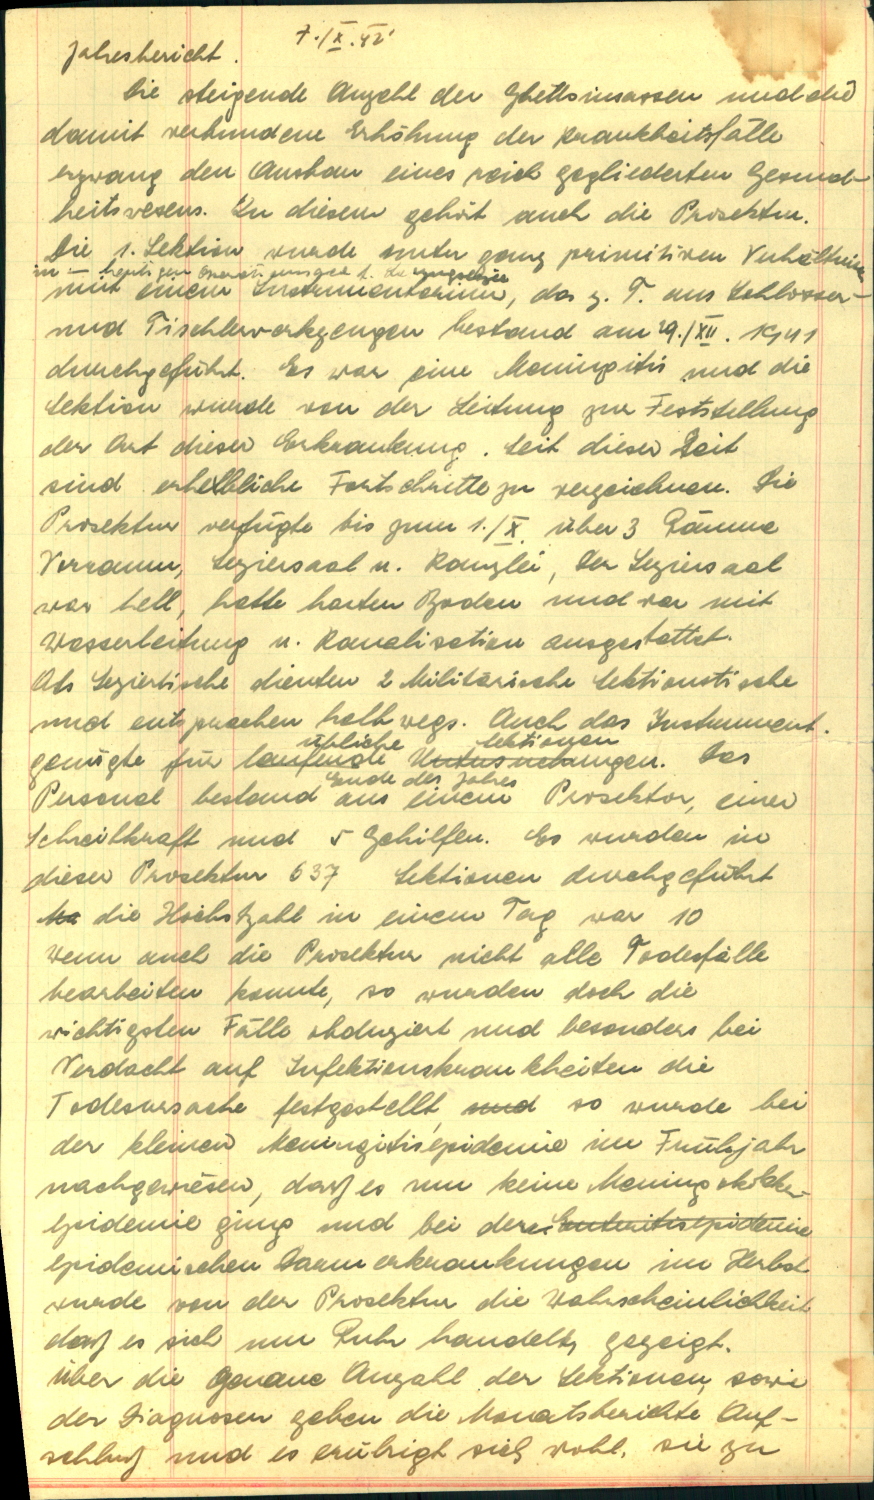 7./X.42
Jahresbericht.
Die steigende Anzahl der Ghettoinsassen und die
damit verbundene Erhöhung der Krankheitsfälle
erzwang den Ausbau eines reich gegliederten Gesund-
heitswesens. Zu diesem gehört auch die Prosektur.
Die 1. Sektion wurde unter ganz primitiven Verhältnissen
im heutigen
mit einem Instrumentarium, das z. T. aus Schlosser-
und Tischlerwerkzeugen bestand am 29./XII. 1941
durchgeführt. Es war eine Meningitis und die
Sektion wurde von der Leitung zur Feststellung
der Art dieser Erkrankung. Seit dieser Zeit
sind erhebliche Fortschritte zu verzeichnen. Die
Prosektur verfügte bis zum 1./X. über 3 Räume
Vorraum, Seziersaal u. Kanzlei, Der Seziersaal
war hell, hatte harten Boden und war mit
Wasserleitung u. Kanalisation ausgestattet.
Als Seziertische dienten 2 Militärische Sektionstische
und entsprachen halbwegs. Auch das Instrument.
übliche Sektionen
genügte für laufende Untersuchungen. Das
Ende des Jahres
Personal bestand aus einem Prosektor, einer
Schreibkraft und 5 Gehilfen. Es wurden in
dieser Prosektur 637 Sektionen durchgeführt
die Höchstzahl in einem Tag war 10
Wenn auch die Prosektur nicht alle Todesfälle
bearbeiten konnte, so wurden doch die
wichtigsten Fälle obduziert und besonders bei
Verdacht auf Infektionskrankheiten die
Todesursache festgestellt, und so wurde bei
der kleinen Meningitisepidemie im Frühjahr
nachgewiesen, daß es um keine Meningokokken-
epidemie ging und bei den Enteritisepidemie
epidemischen Darmerkrankungen im Herbst
wurde von der Prosektur die Wahrscheinlichkeit
daß es sich um Ruhr handelt, gezeigt.
Über die genaue Anzahl der Sektionen, sowie
der Diagnosen geben die Monatsberichte Auf-
schluß und es erübrigt sich wohl, sie zu